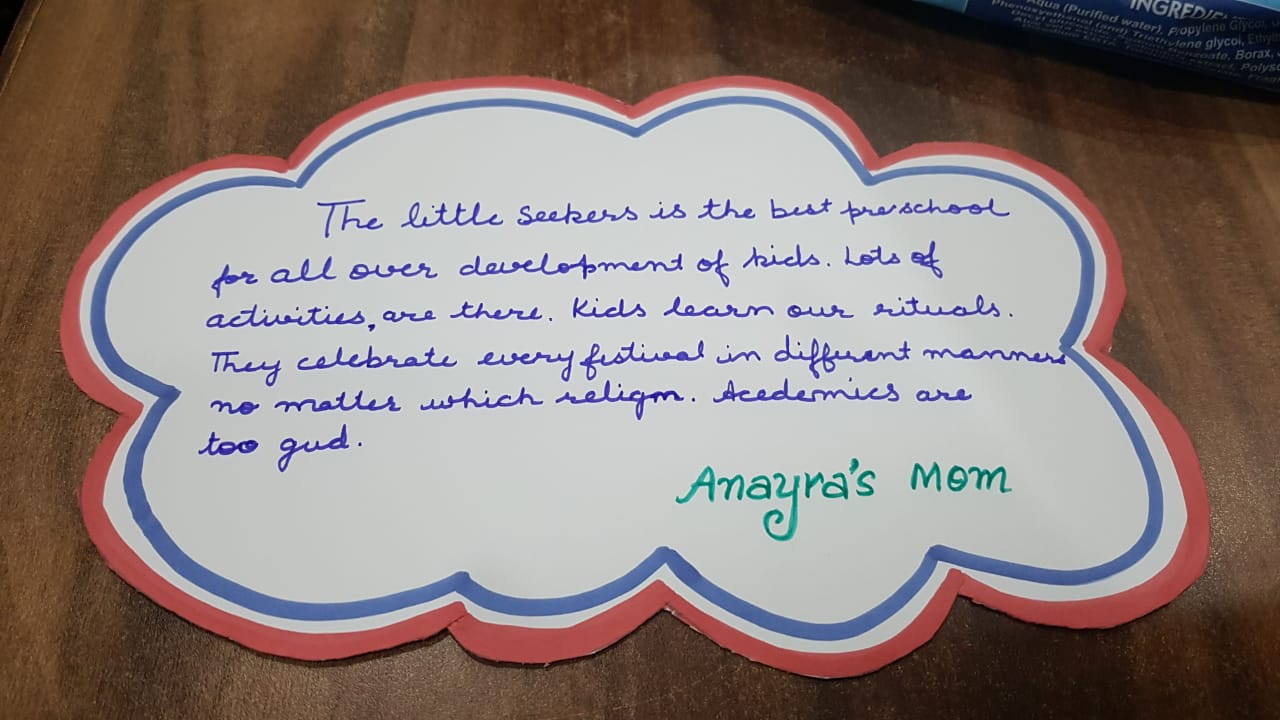 INGREDIE
Aqua (Purified water), Propylene Glycol,
Phenoxyethanol (and) Triethylene glycol, Ethylh
Borax,
Polyso
The little seekers is the best preschool
for all over development of kids. Lots of
activities, are there. Kids learn our rituals.
They celebrate every festival in different manners
no matter which religon. Acedemics are
too gud.
Anayra's Mom